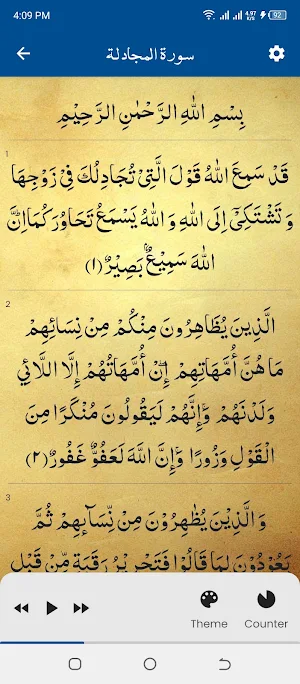 4:09 PM
4.97 K/s
92
سورة المجادلة
بِسْمِ اللهِ الرَّحْمٰنِ الرَّحِيْمِ
1
قَدْ سَمِعَ اللهُ قَوْلَ الَّتِيْ تُجَادِلُكَ فِيْ زَوْجِهَا
وَ تَشْتَكِيْٓ اِلَى اللهِ وَ اللهُ يَسْمَعُ تَحَاوُرَكُمَا اِنَّ
اللهَ سَمِيْعٌۢ بَصِيْرٌ ﴿۱﴾
2
الَّذِينَ يُظَاهِرُونَ مِنْكُمْ مِنْ نِسَائِهِمْ
مَا هُنَّ أُمَّهَاتِهِمْ إِنْ أُمَّهَاتُهُمْ إِلَّا اللَّائِي
وَلَدْنَهُمْ وَإِنَّهُمْ لَيَقُولُونَ مُنْكَرًا مِنَ
الْقَوْلِ وَزُورًا وَإِنَّ اللَّهَ لَعَفُوٌّ غَفُورٌ ﴿۲﴾
3
وَ الَّذِيْنَ يُظٰهِرُوْنَ مِنْ نِّسَآىِٕهِمْ ثُمَّ
يَعُوْدُوْنَ لِمَا قَالُوْا فَتَحْرِيْرُ رَقَبَةٍ مِّنْ قَبْلِ
Theme
Counter